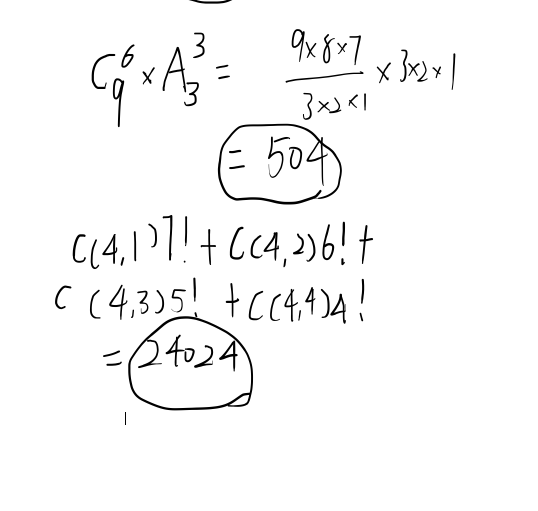 C_9^6 × A_3^3 = \frac{9×8×7}{3×2×1} × 3×2×1
= 504
C(4,1)7! + C(4,2)6! +
C(4,3)5! + C(4,4)4!
= 24024